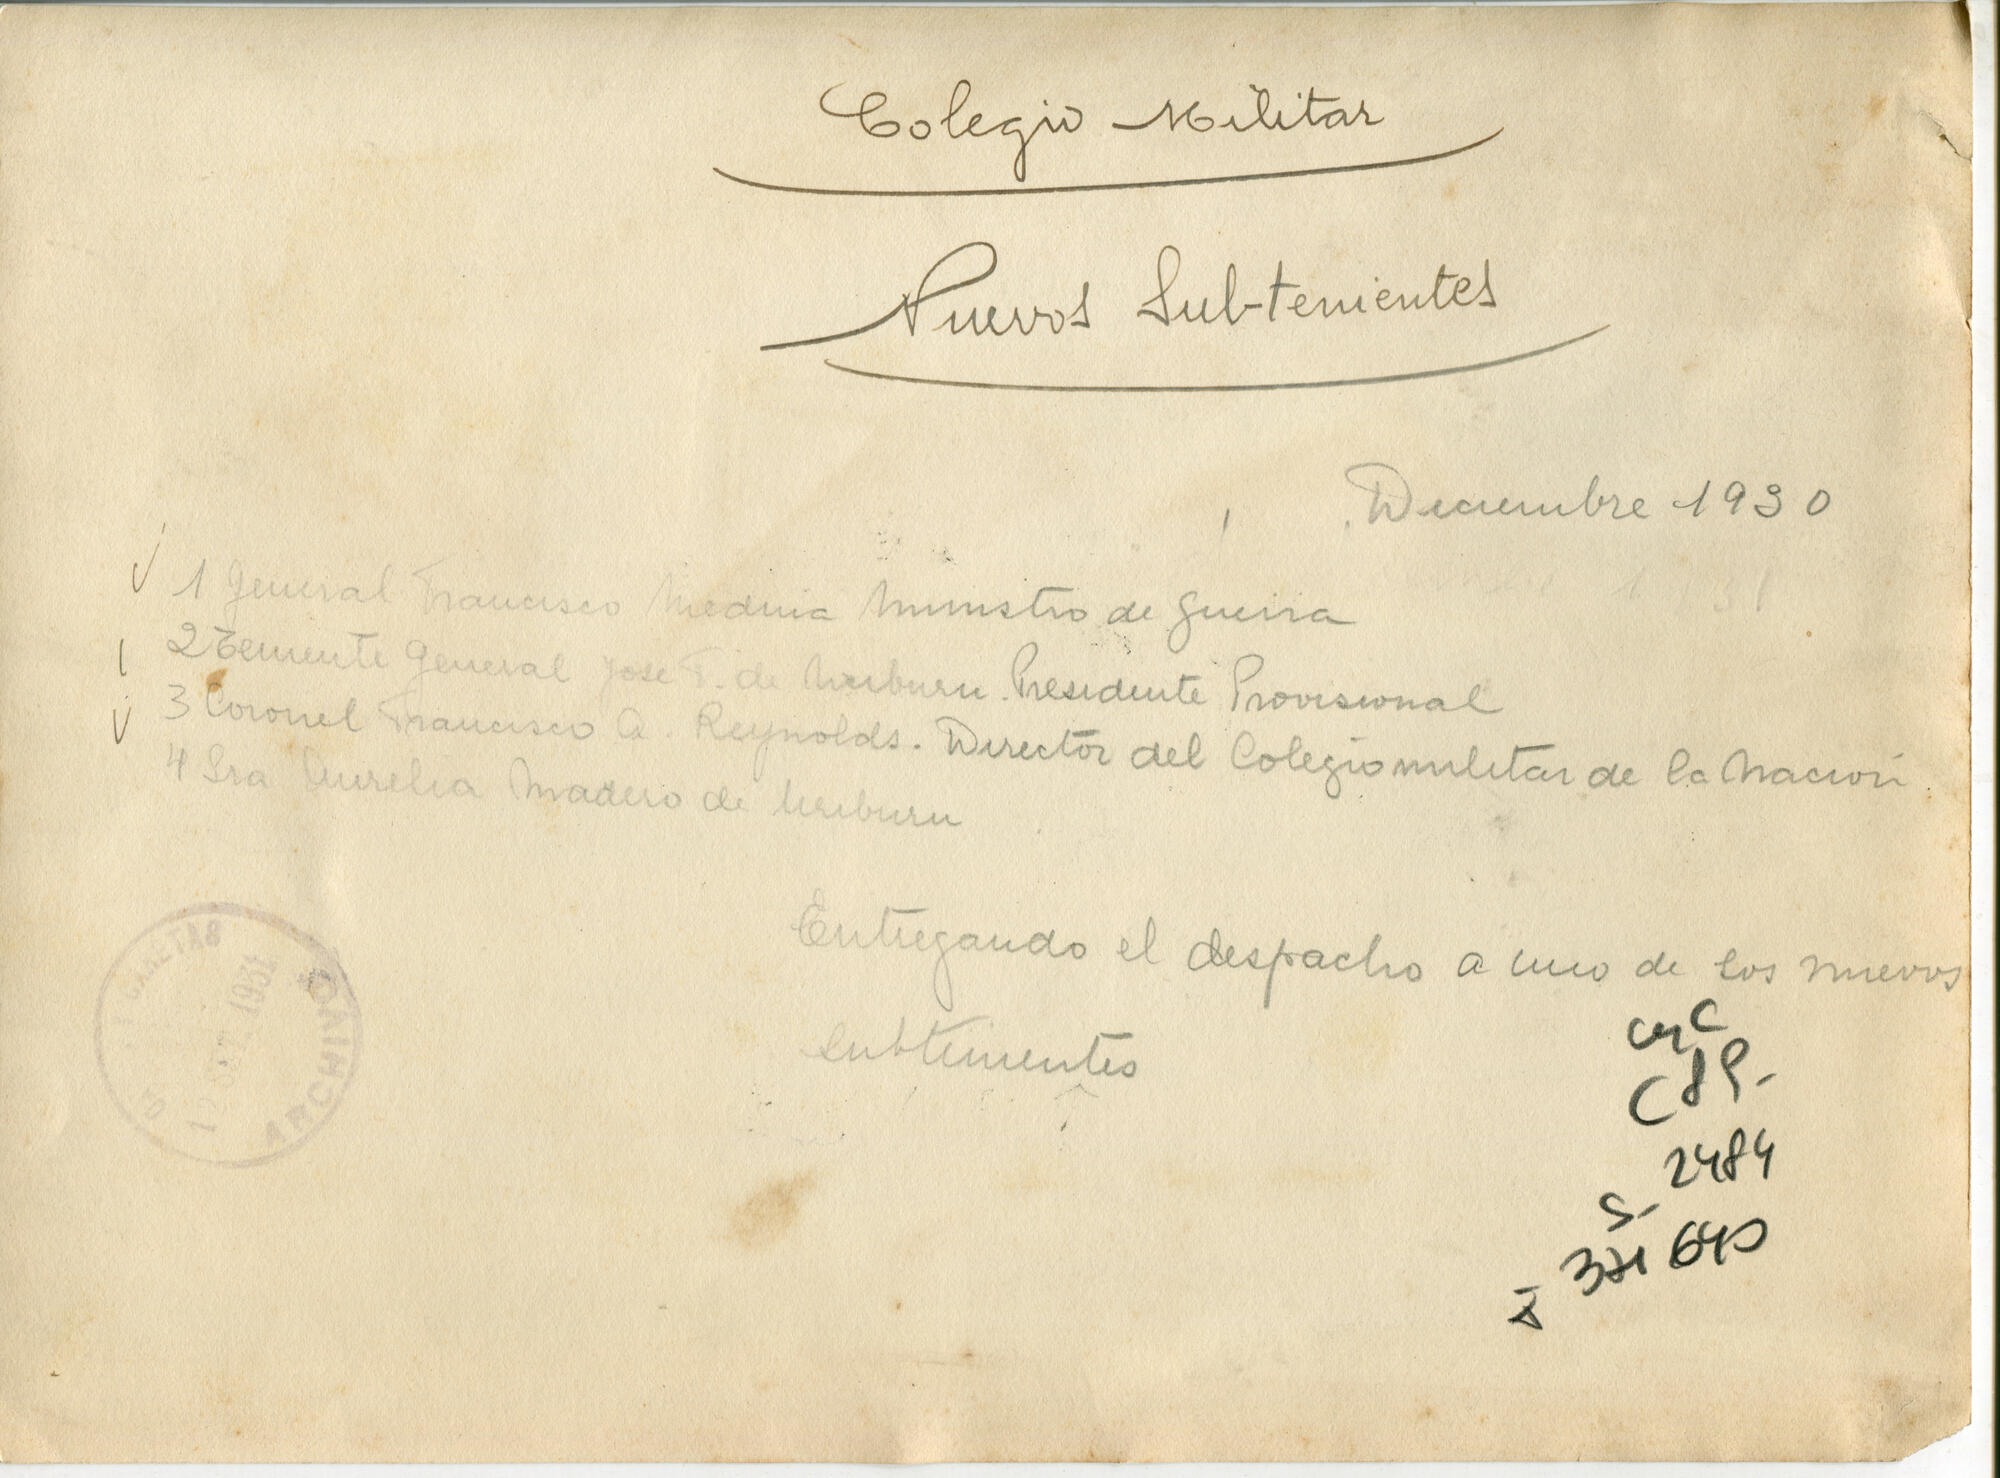 Colegio Militar
Nuevos Sub-tenientes
Diciembre 1930
1 General Francisco Medina Ministro de Guerra
2 Teniente General Jose F. de Uriburu. Presidente Provisional
3 Coronel Francisco A. Reynolds. Director del Colegio militar de la Nacion
4 Sra Aurelia Madero de Uriburu
Entregando el despacho a uno de los nuevos
subtenientes
CARETAS
1931
ARCHIVO
2484